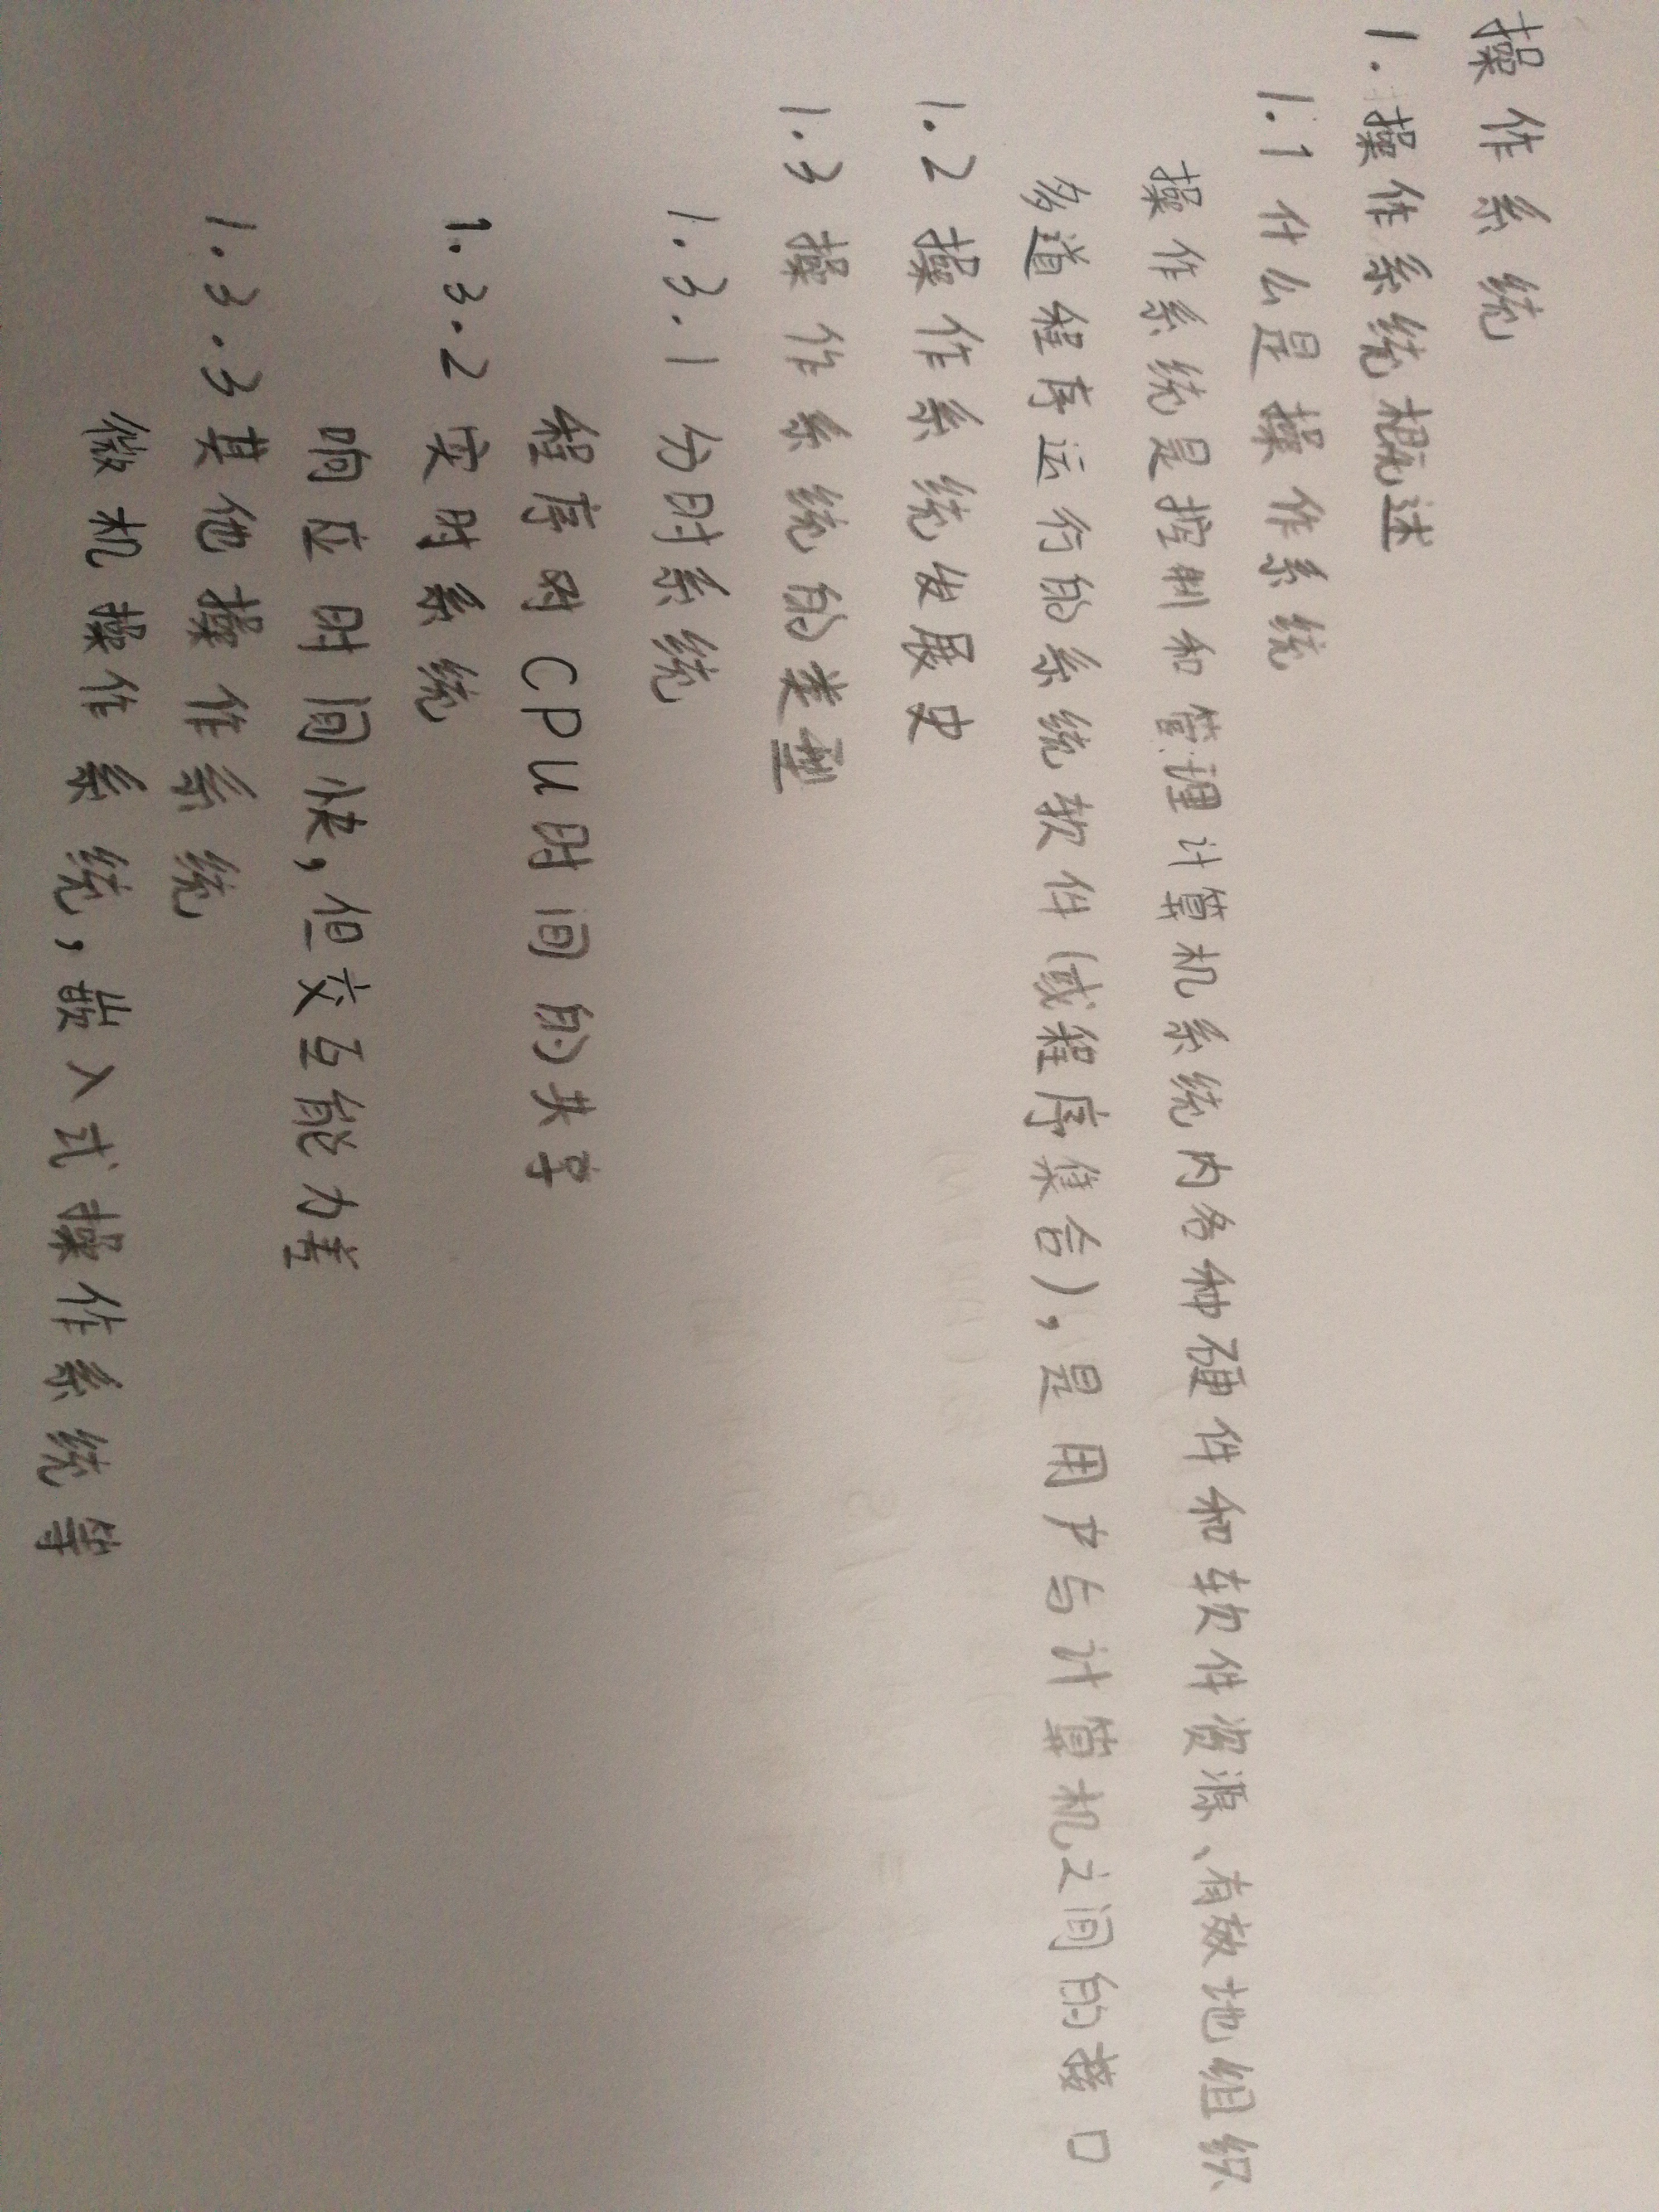 操作系统
1. 操作系统概述
1.1 什么是操作系统
操作系统是控制和管理计算机系统内各种硬件和软件资源、有效地组织
多道程序运行的系统软件(或程序集合),是用户与计算机之间的接口
1.2 操作系统发展史
1.3 操作系统的类型
1.3.1 分时系统
程序对CPU时间的共享
1.3.2 实时系统
响应时间快,但交互能力差
1.3.3 其他操作系统
微机操作系统,嵌入式操作系统等